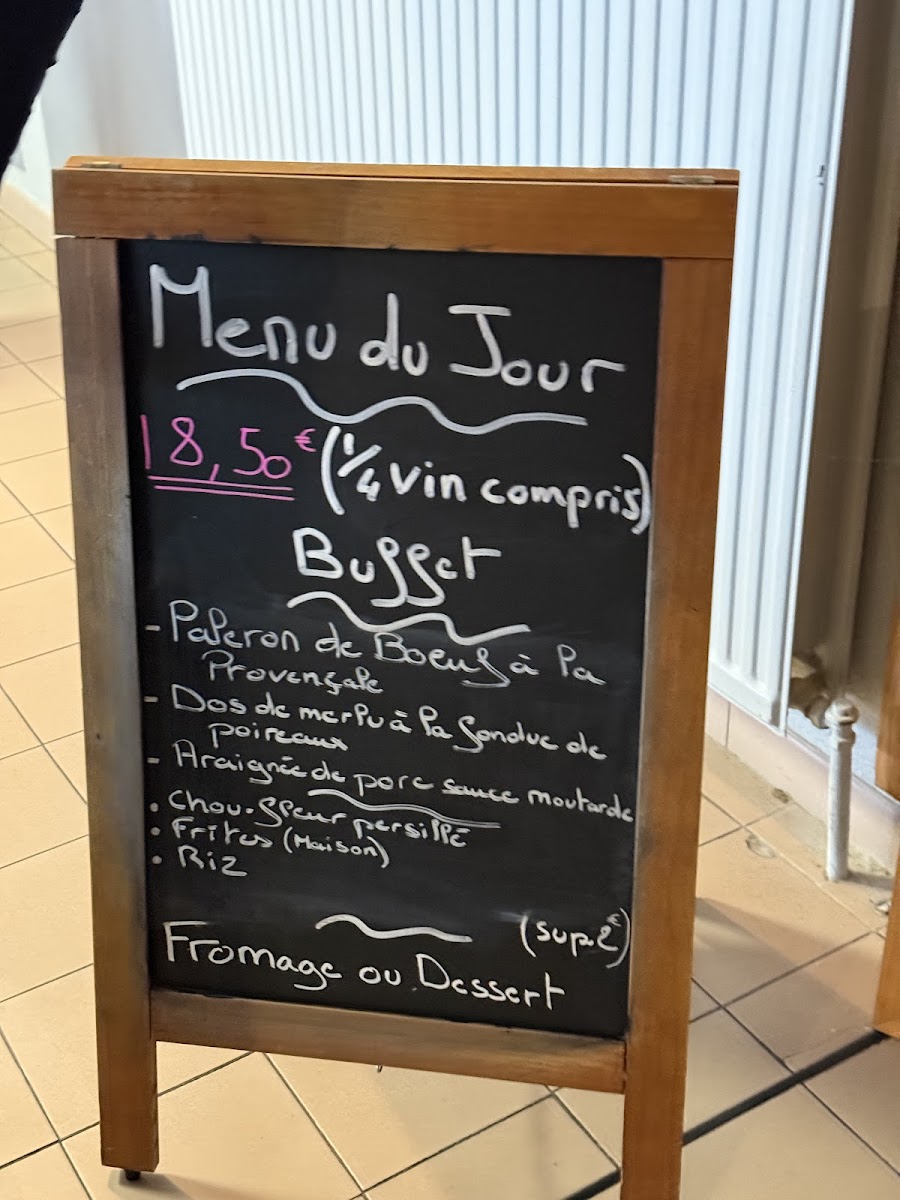 Menu du Jour
18,50€ (1/4 vin compris)
Buffet
- Paleron de Boeuf à la
Provençale
- Dos de merlu à la fondue de
poireaux
- Araignée de porc sauce moutarde
• Chou-fleur persillé
• Frites (Maison)
• Riz
(sup 2€)
Fromage ou Dessert